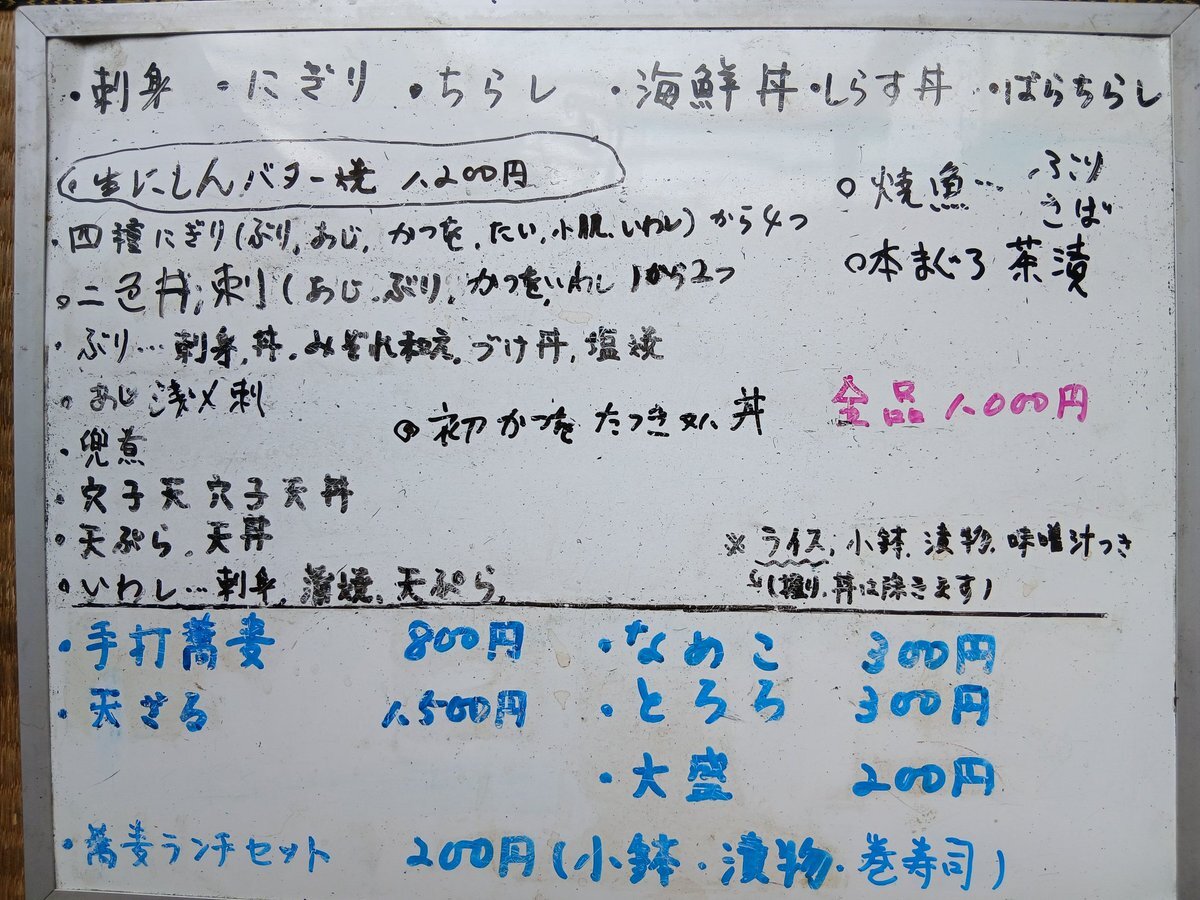 ・刺身 ・にぎり ・ちらし ・海鮮丼・しらす丼 ・ばらちらし
○生にしんバター焼 1,200円
・四種にぎり(ぶり,あじ,かつを,たい,小肌,いわし)から4つ
○二色丼,刺(あじ,ぶり,かつを,いわし)から2つ
・ぶり…刺身,丼,みぞれ和え,づけ丼,塩焼
・あじ浅〆刺
・兜煮
・穴子天 穴子天丼
・天ぷら,天丼
・いわし…刺身,蒲焼,天ぷら,
○焼魚…ぶり
さば
○本まぐろ茶漬
◎初かつをたつき 丼
全品1,000円
※ライス,小鉢,漬物,味噌汁つき
(握り,丼は除きます)
・手打蕎麦 800円
・天ざる 1,500円
・なめこ 300円
・とろろ 300円
・大盛 200円
・蕎麦ランチセット 200円(小鉢・漬物・巻寿司)